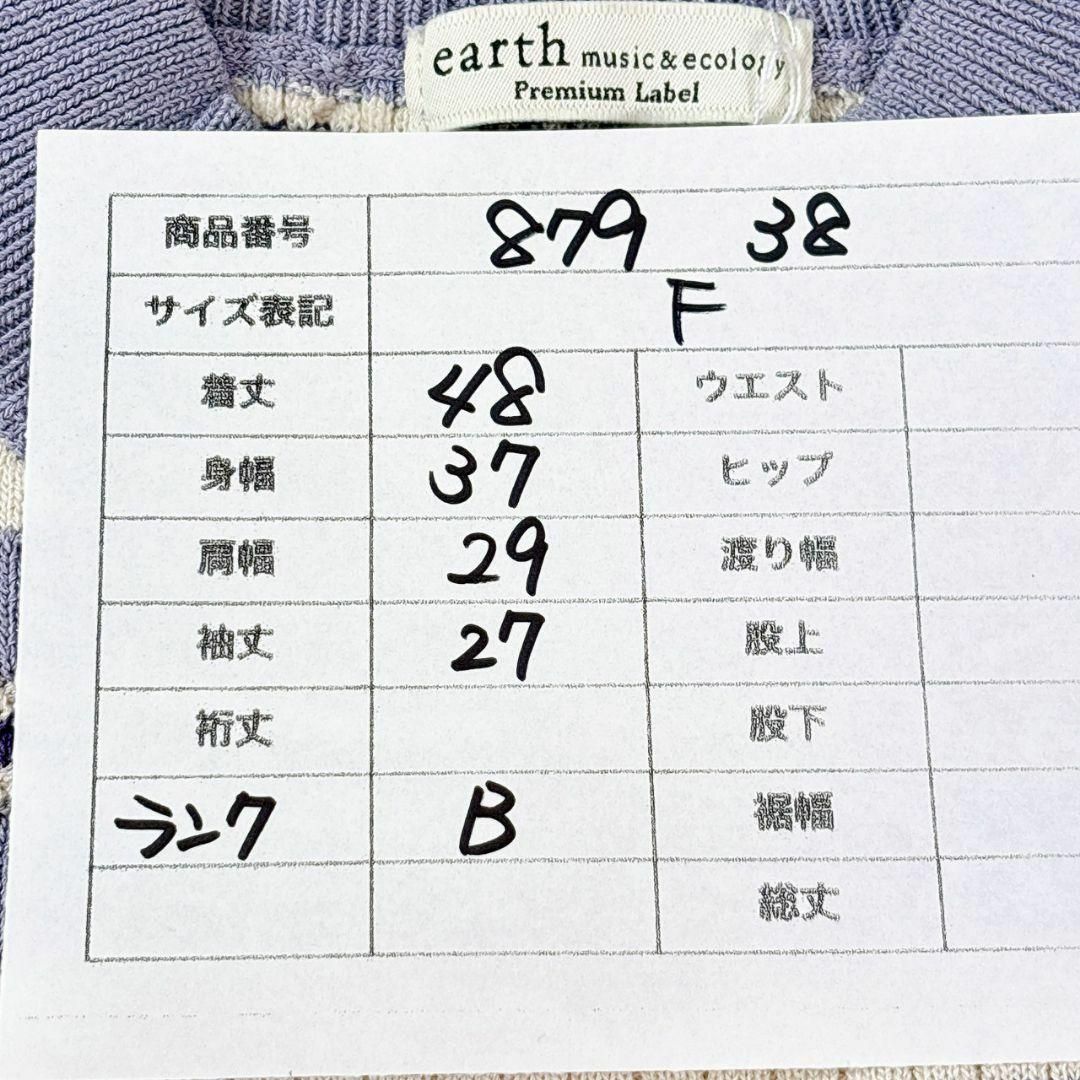 earth music&ecology
Premium Label
商品番号 879 38
サイズ表記 F
着丈 48 ウエスト
身幅 37 ヒップ
肩幅 29 渡り幅
袖丈 27 股上
裄丈 股下
ランク B 裾幅
総丈